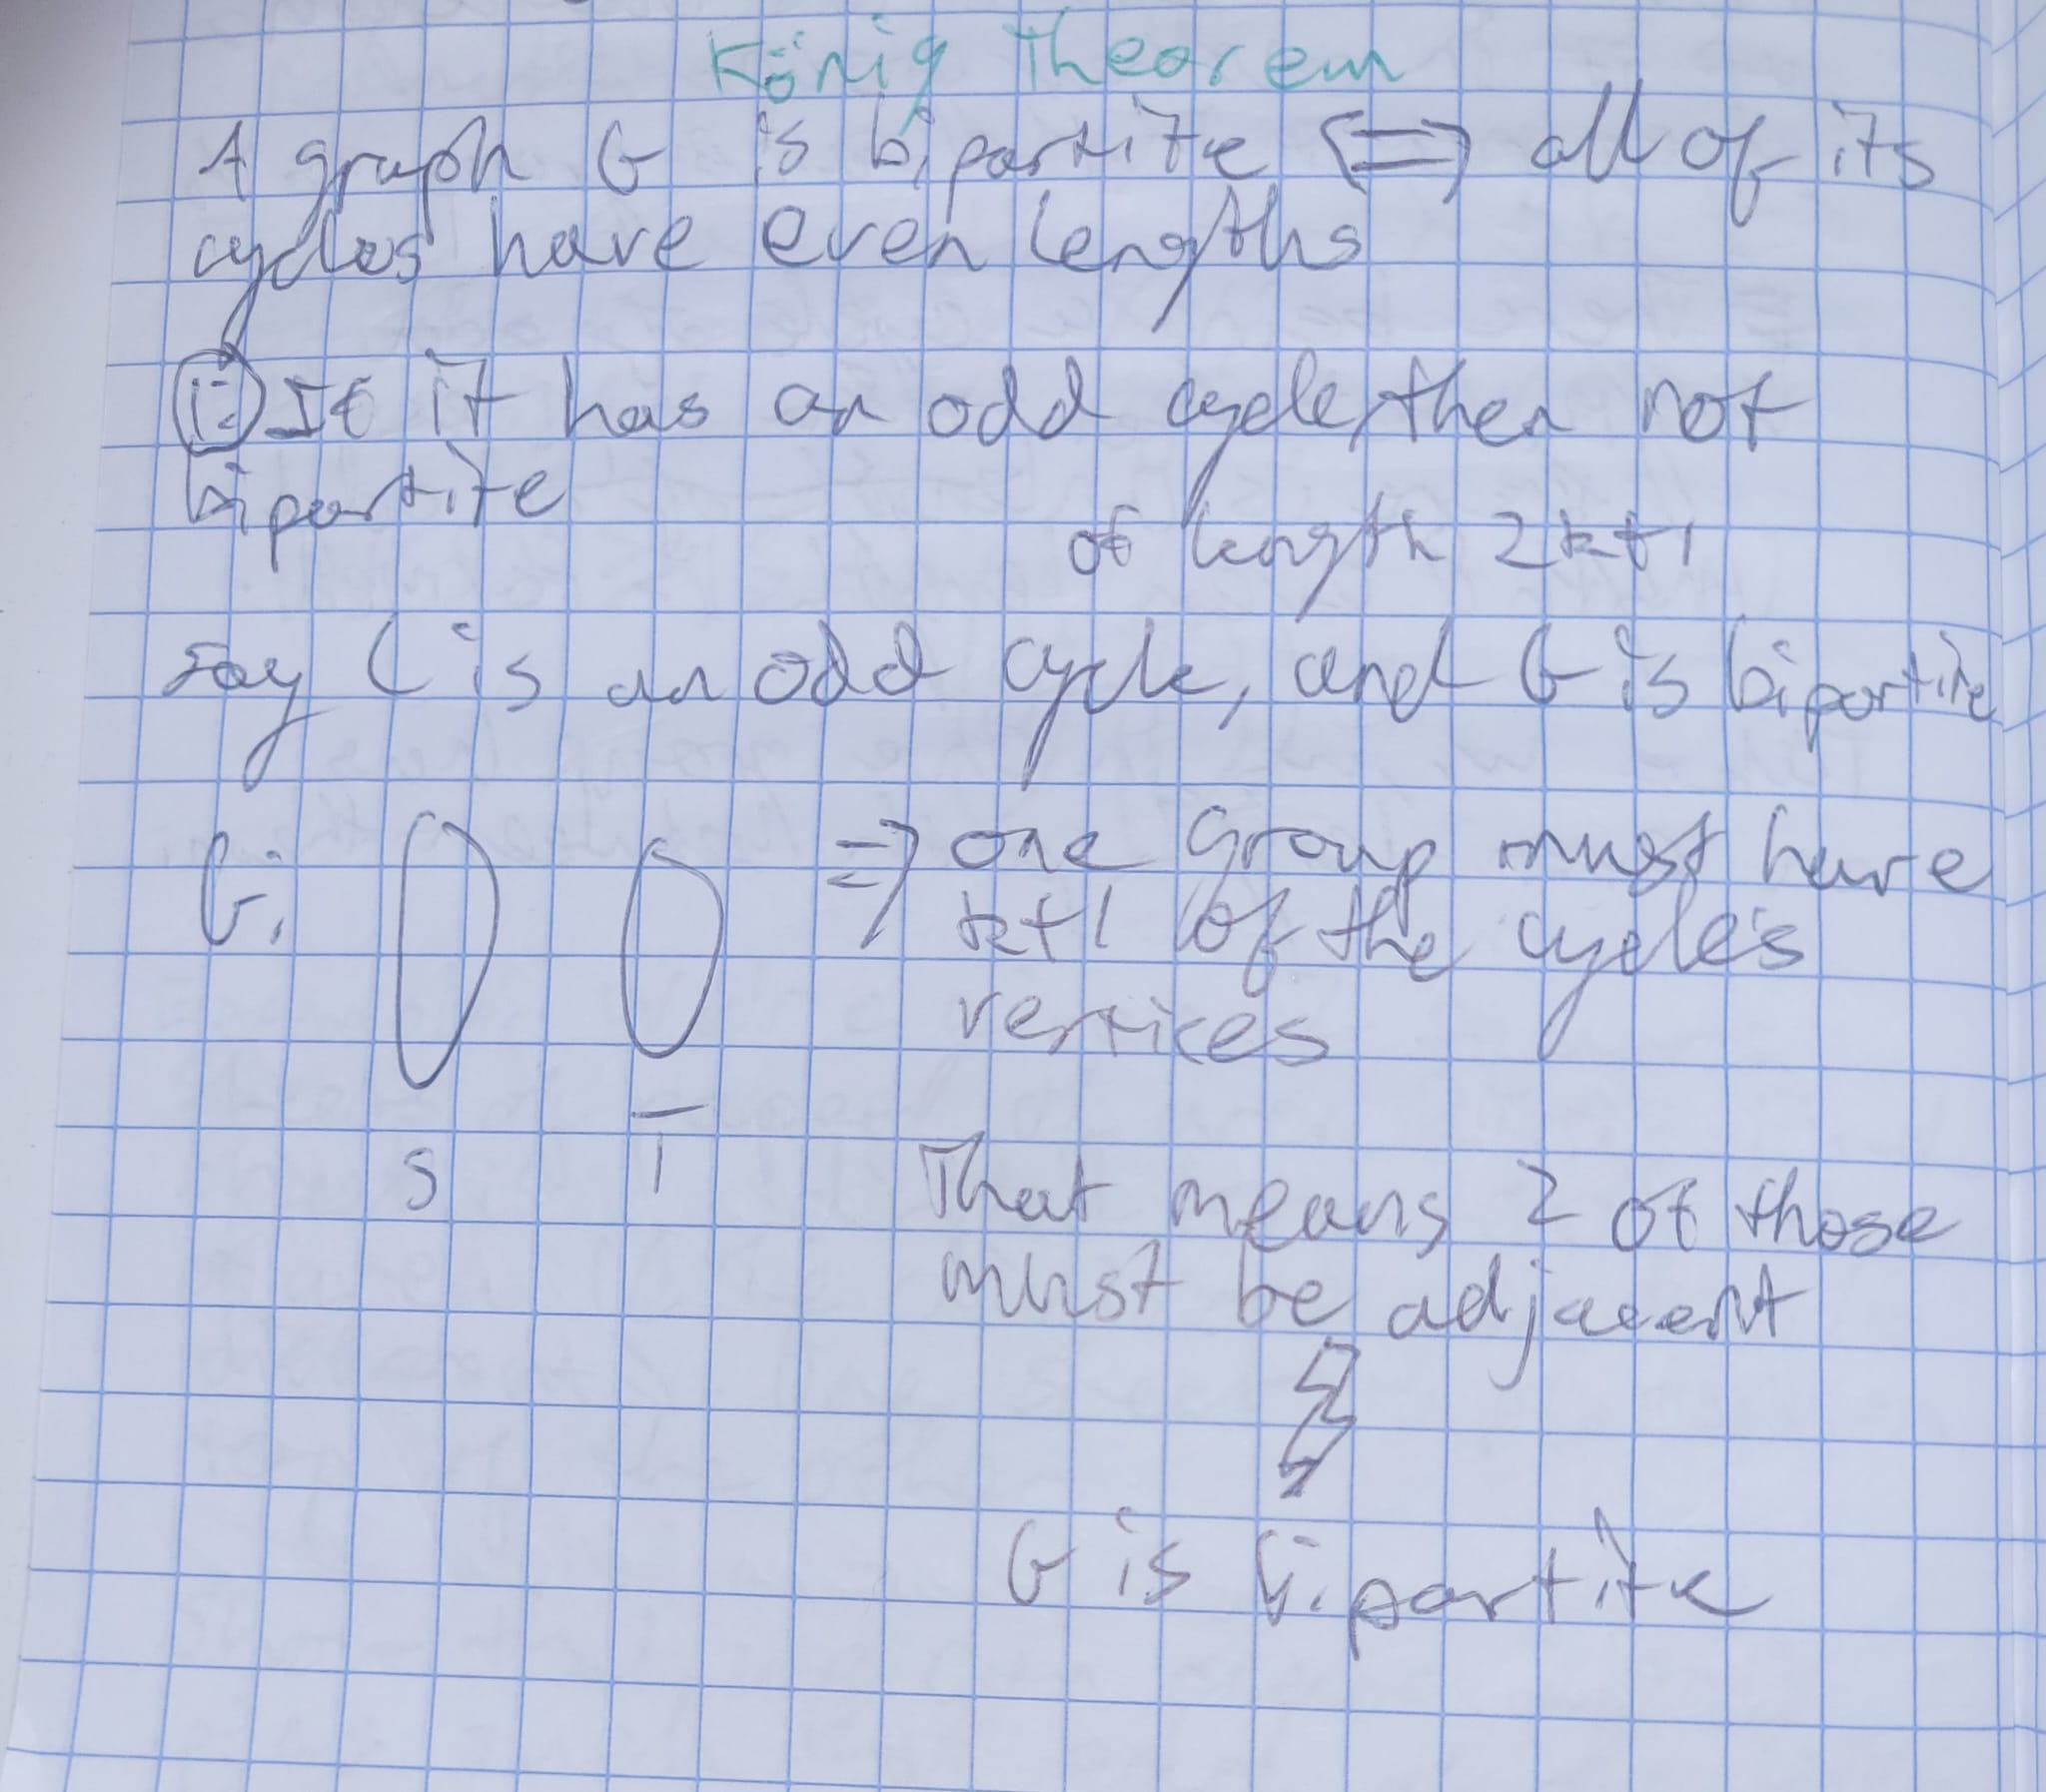 König Theorem
A graph G is bipartite <=> all of its
cycles have even lengths
1: If it has an odd cycle, then not
bipartite
of length 2k+1
Say C is an odd cycle, and G is bipartite
G: => one group must have
k+1 of the cycle's
vertices
S T
That means 2 of those
must be adjacent
G is bipartite